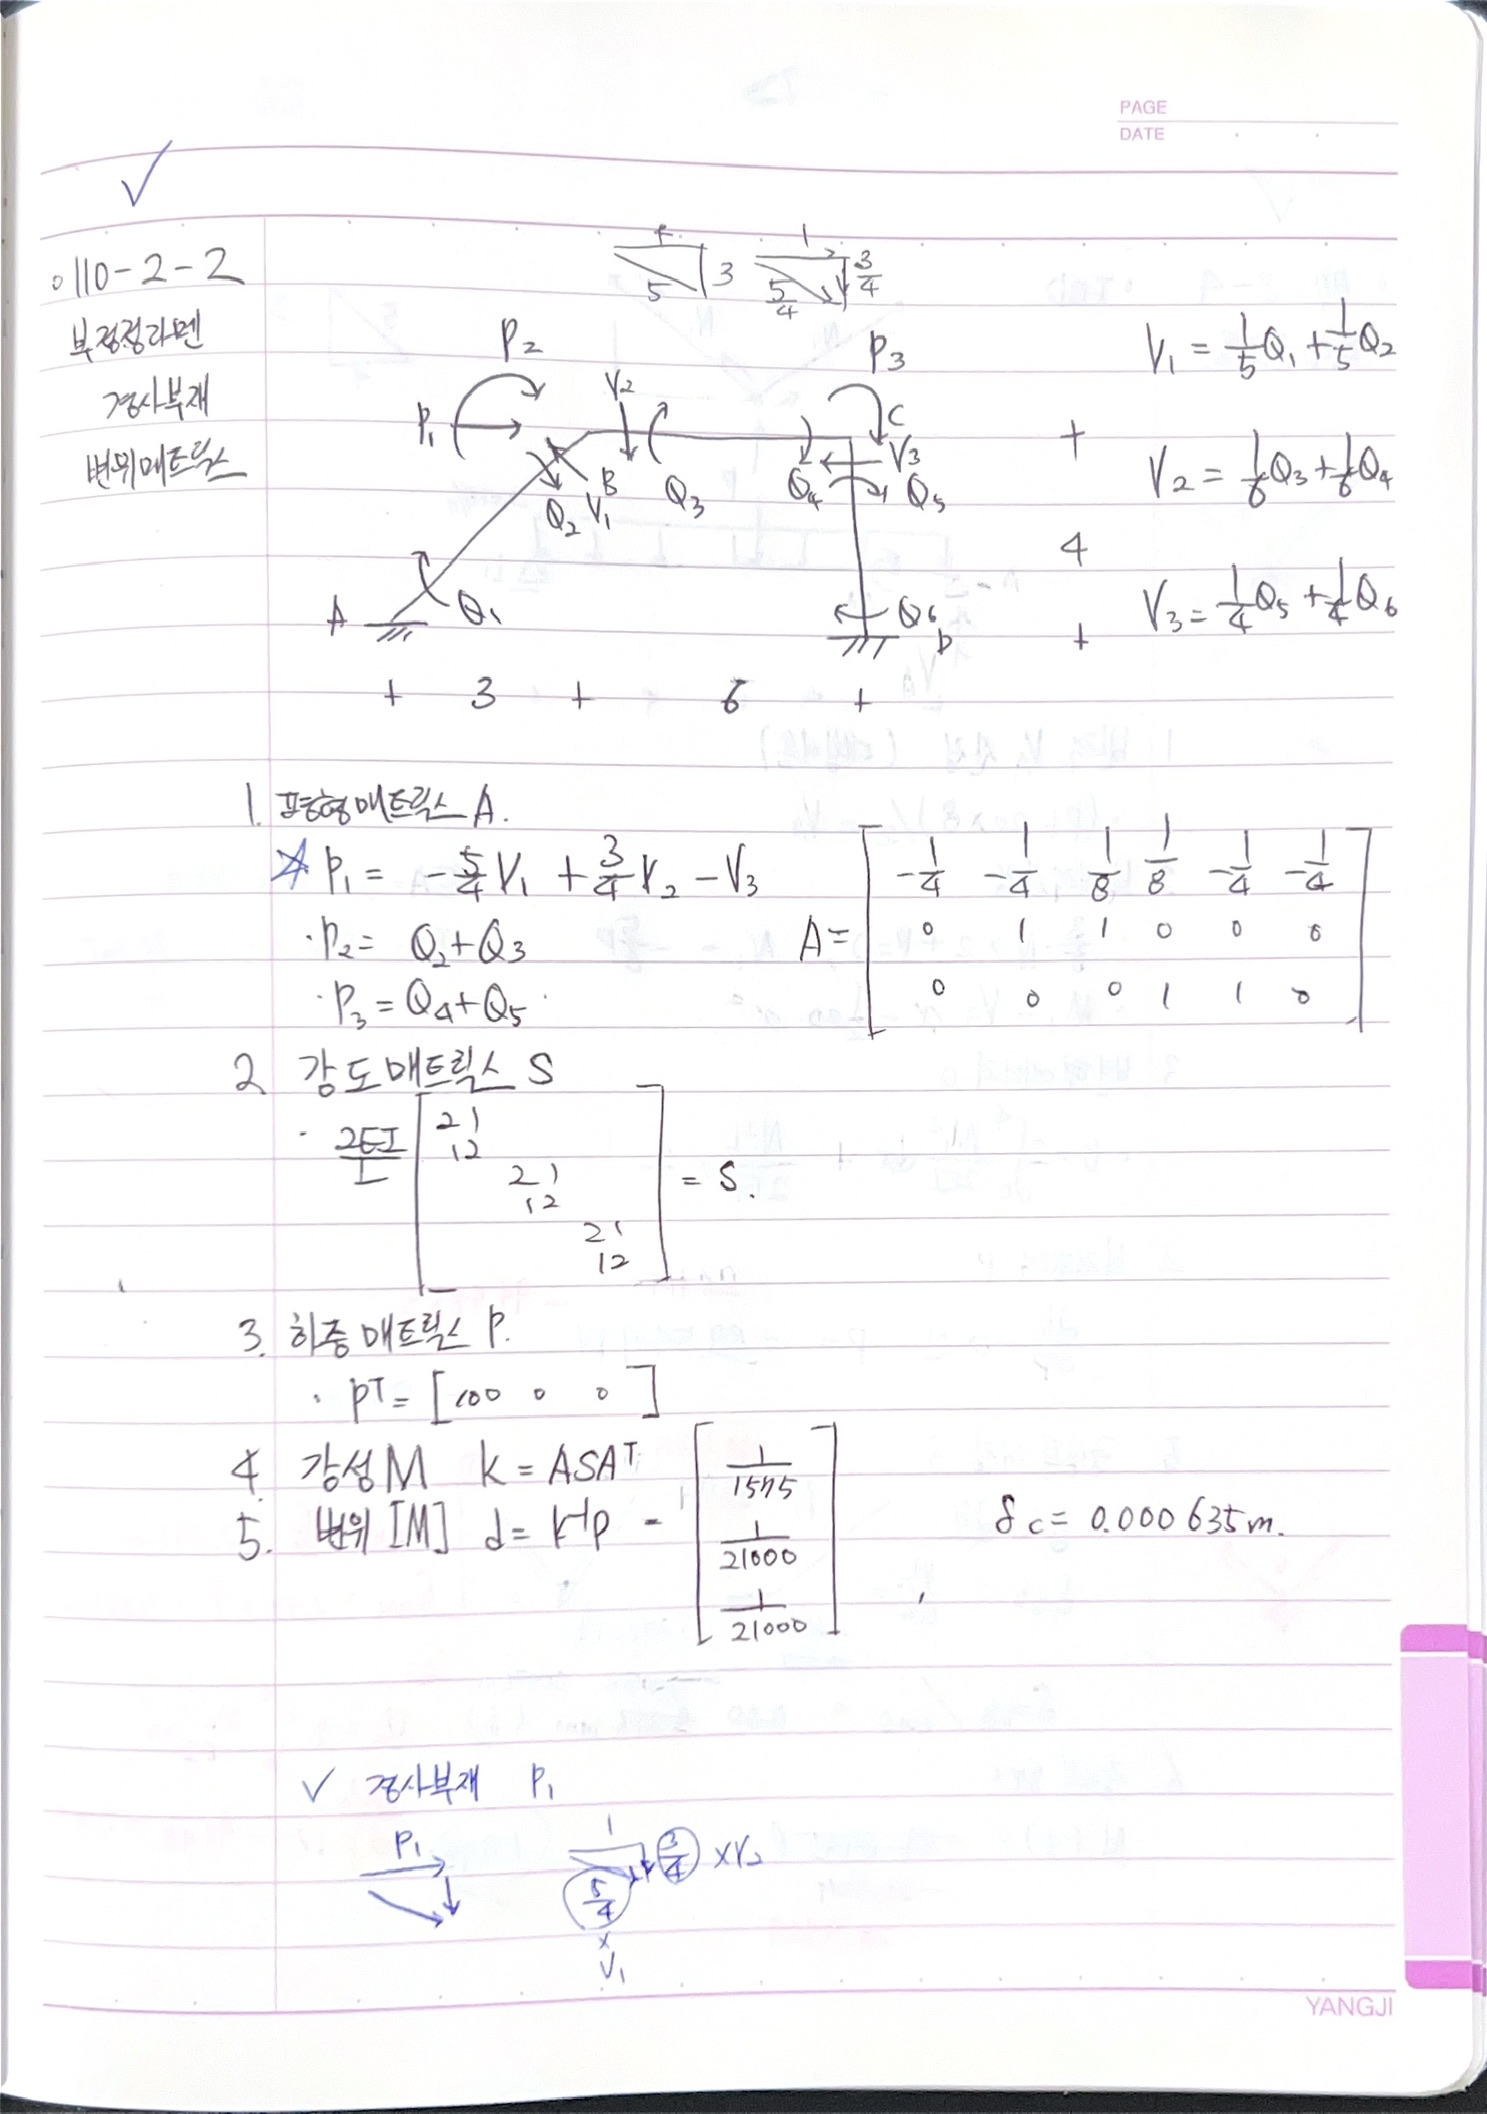 PAGE
DATE
✓
∘110-2-2
부정정라멘
경사부재
변위매트릭스
4
5
3
1
5/4
3/4
P₂
P₃
P₁
V₂
C
V₃
B
Q₂
V₁
Q₃
Q₄
Q₅
A
Q₁
Q₆
D
+ 3 + 6 +
+
4
+
V₁ = 1/5 Q₁ + 1/5 Q₂
V₂ = 1/6 Q₃ + 1/6 Q₄
V₃ = 1/4 Q₅ + 1/4 Q₆
1. 평형매트릭스 A.
☆ P₁ = -5/4 V₁ + 3/4 V₂ - V₃
· P₂ = Q₂ + Q₃
· P₃ = Q₄ + Q₅
A = [ -1/4 -1/4 1/8 1/8 -1/4 -1/4
0 1 1 0 0 0
0 0 0 1 1 0 ]
2. 강도매트릭스 S
· 2EI/L [ 2 1
1 2
2 1
1 2
2 1
1 2 ] = S.
3. 하중매트릭스 P.
· Pᵀ = [ 100 0 0 ]
4. 강성M K = ASAᵀ
5. 변위 [M] d = K⁻¹P = [ 1/1575
1/21000
1/21000 ]
δc = 0.000635m.
✓ 경사부재 P₁
P₁
1
3/4 × V₂
5/4
×
V₁
YANGJI